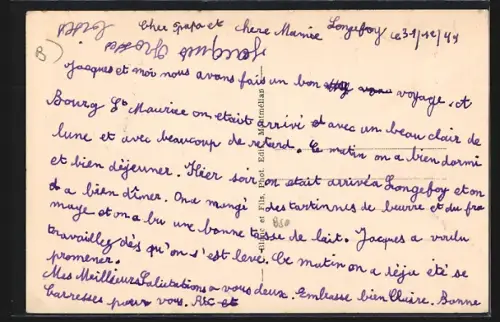 Longefoy le 31/12/49
Cher papa et chere Mamie
Jacques et moi nous avons fais un bon voyage. A
Bourg St Maurice on etait arrivé et avec un beau clair de
lune et avec beaucoup de retard. Ce matin on a bien dormi
et bien déjeuner. Hier soir on etait arrivé a Longefoy et on
a bien dîner. On a mangé des tartinnes de beurre et du fro
mage et on a bu une bonne tasse de lait. Jacques a voulu
travaillez dès qu'on s'est levé. Ce matin on a déja été se
promener.
Mes Meilleurs Salutations a vous deux. Embrasse bien Claire. Bonne
Carresses pour vous.
Jacques
B
et Fils, Phot. Edit. Montmélian